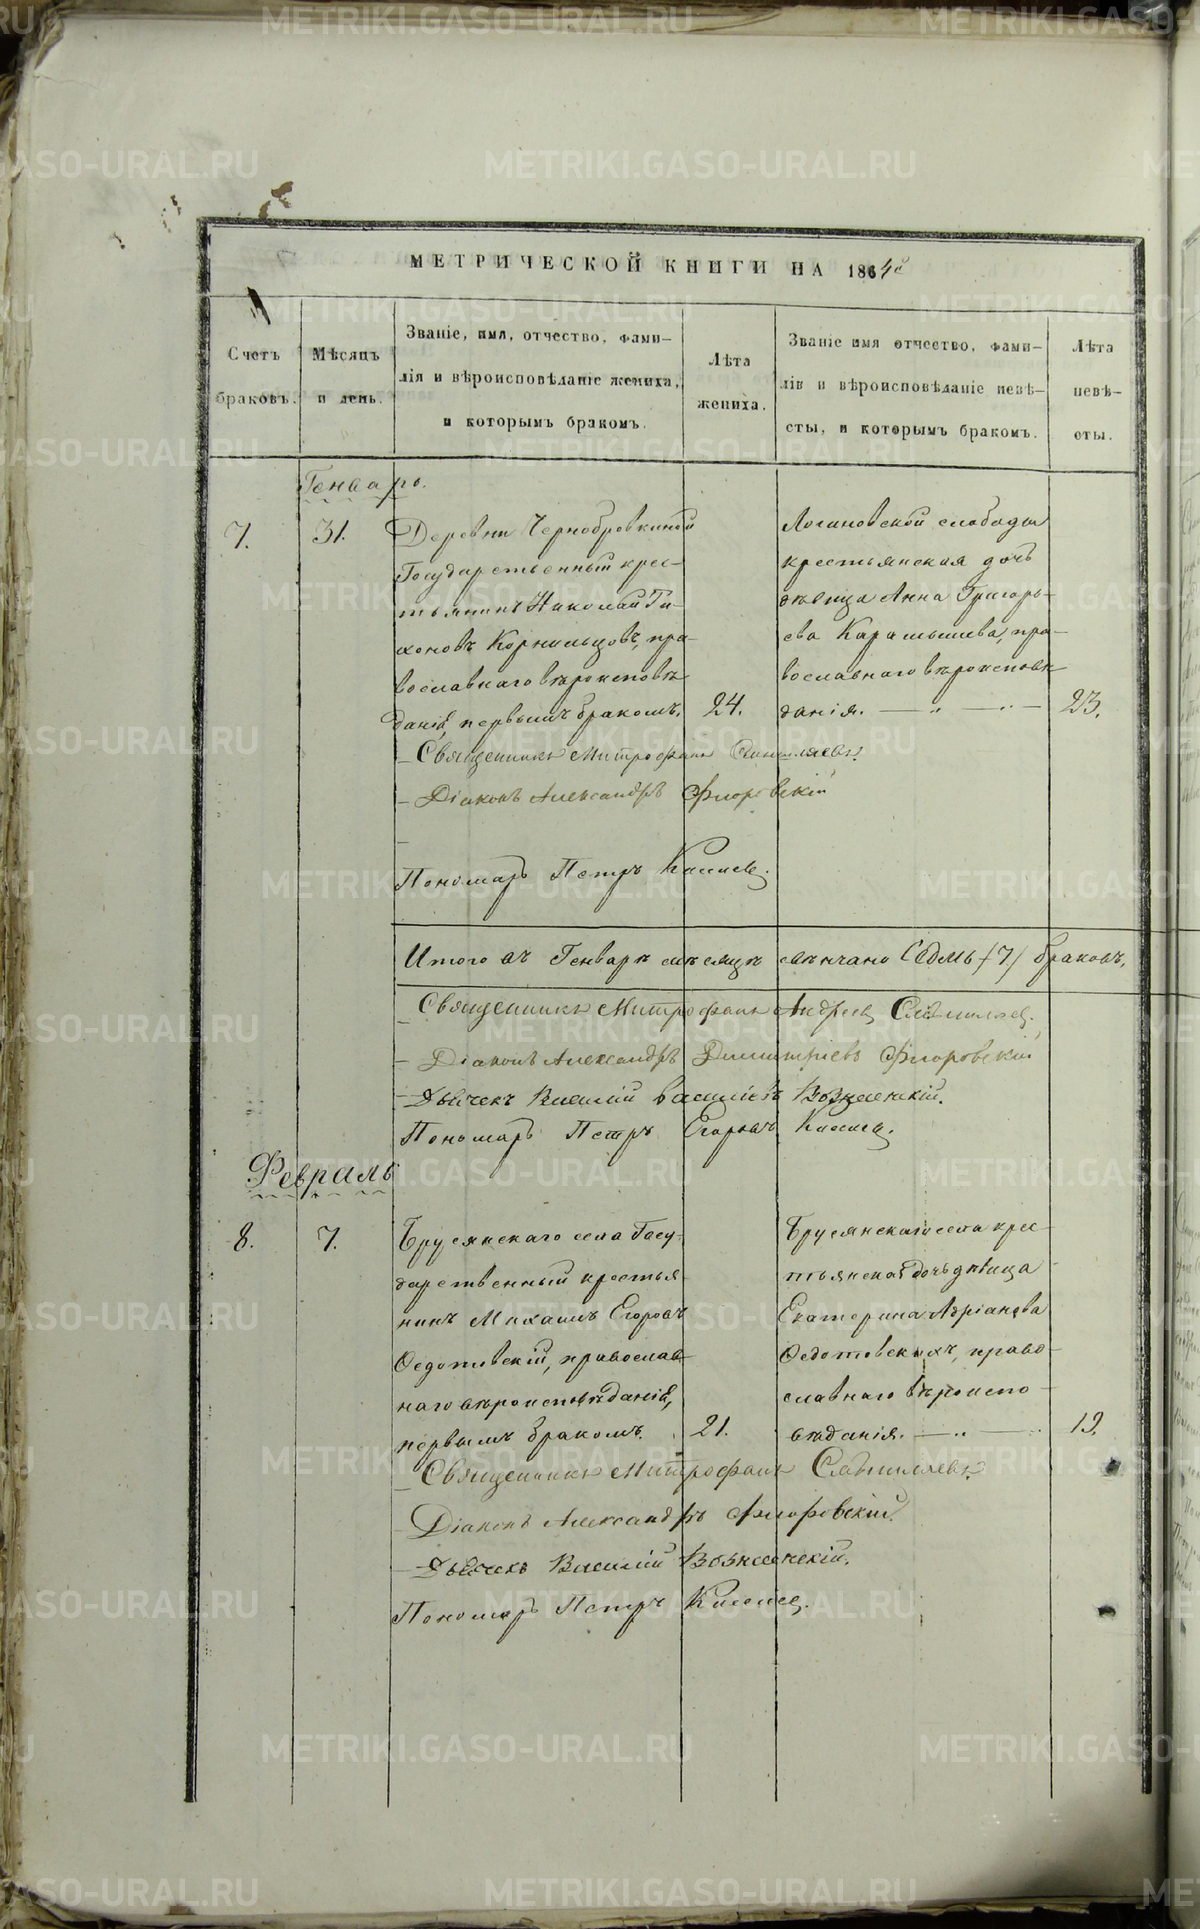 МЕТРИЧЕСКОЙ КНИГИ НА 1864й
Счетъ браковъ.
Мѣсяцъ и день.
Званіе, имя, отчество, фами-
лія и вѣроисповѣданіе жениха,
и которымъ бракомъ.
Лѣта жениха.
Званіе имя отчество, фами-
лія и вѣроисповѣданіе невѣ-
сты, и которымъ бракомъ.
Лѣта невѣ-
сты.
Генварь.
7.
31.
Деревни Чернобровкиной
Государственный крес-
тьянинъ Николай Ти-
хоновъ Корнильцовъ, пра-
вославнаго вѣроисповѣ
данія, первымъ бракомъ.
24.
Логиновской слободы
крестьянская дочь
дѣвица Анна Григорь-
ева Карамышева, пра-
вославнаго вѣроисповѣ
данія.
23.
Священникъ Митрофанъ
Діаконъ Александръ Флоровскій
Пономарь Петръ
Итого въ Генварѣ мѣсяцѣ вѣнчано Седмь /7/ браковъ.
Священникъ Митрофанъ Андреев
Діаконъ Александръ Димитріевъ Флоровскій
Дьячекъ Василій Васильевъ Вознесенскій.
Пономарь Петръ Егоровъ
Февраль
8.
7.
Брусянскаго села Госу-
дарственный крестья-
нинъ Михаилъ Егоровъ
Ѳедотовскій, православ-
наго вѣроисповѣданія,
первымъ бракомъ.
21.
Брусянскаго села крес-
тьянская дочь дѣвица
Екатерина Адріанова
Ѳедотовскихъ, право-
славнаго вѣроиспо-
вѣданія.
19.
Священникъ Митрофанъ
Діаконъ Александръ Флоровскій.
Дьячекъ Василій Вознесенскій.
Пономарь Петръ
METRIKI.GASO-URAL.RU